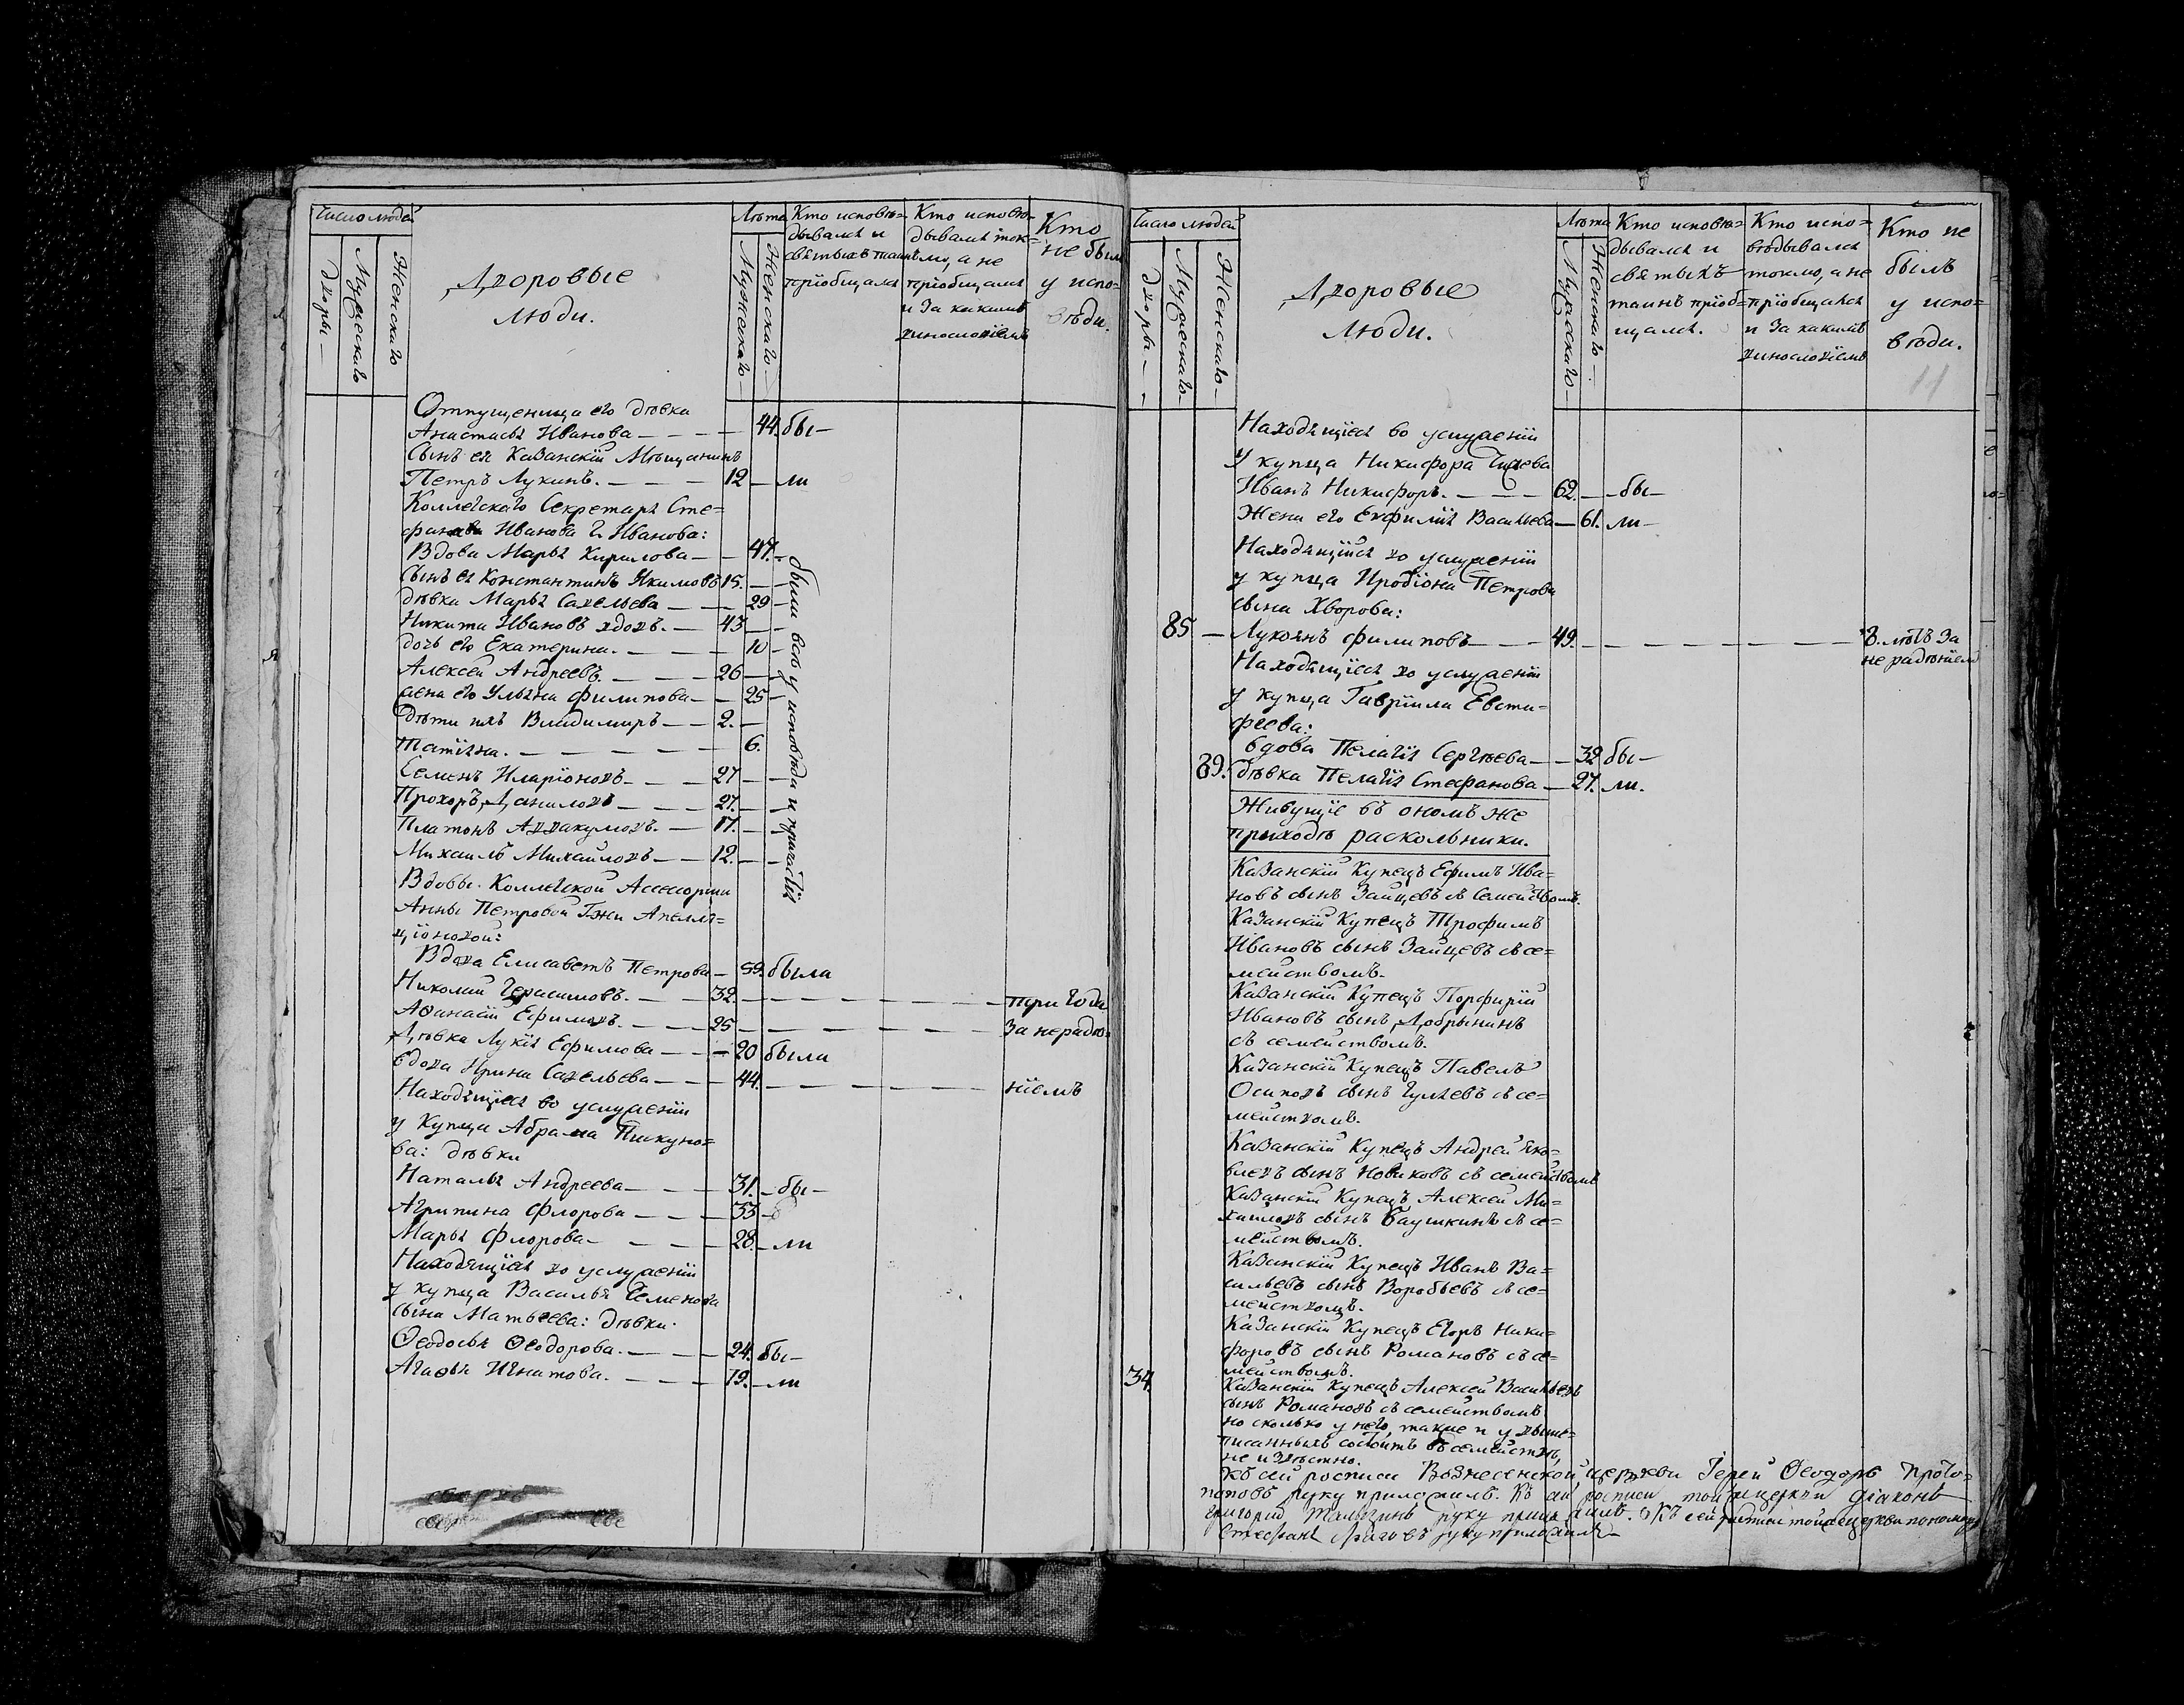 Число людей
Дворы
Мужескаго
Женскаго
Дворовые
люди.
Лѣта
Мужескаго
Женскаго
Кто исповѣ=
дывался и
святыхъ таинъ
пріобщался
Кто исповѣ=
дывался ток=
мо, а не
пріобщался
и за какимъ
винословіемъ
Кто
не былъ
у испо=
вѣди.
Отпущенница его дѣвка
Анастасья Иванова — 44. бы—
Сынъ ея Казанскій Мѣщанинъ
Петръ Лукинъ. — 12 — ли
Коллежскаго Секретаря Сте=
фана Иванова Г. Иванова:
Вдова Марья Кирилова — 47. —
Сынъ ея Константинъ Якимовъ 15. —
дѣвка Марья Савельева — 29 —
Никита Ивановъ вдовъ. — 43 —
дочь его Екатерина. — 10 —
Алексей Андреевъ. — 26 —
жена его Ульяна Филипова — 25 —
дѣти ихъ Владимиръ — 2. —
Татіяна. — 6.
Семенъ Иларіоновъ — 27 —
Прохоръ Даниловъ — 27. —
Платонъ Аввакумовъ. — 17. —
Михаилъ Михайловъ — 12. —
были всѣ у исповѣди и причастія
Вдовы Коллежской Ассесорши
Анны Петровой Г-жи Апелля=
ціоновой:
Вдова Елисаветъ Петрова — 59. была
Николай Герасимовъ. — 32. — три года
Афанасій Ефимовъ. — 25 — за нерадѣ=
Дѣвка Лукія Ефимова — 20 была
вдова Ирина Савельева — 44. — ніемъ
Находящіеся во услуженіи
у Купца Абрама Пикуно=
ва: дѣвки
Наталья Андреева — 31. — бы—
Агрипина Флорова — 33 —
Марья Флорова — 28. — ли
Находящіяся во услуженіи
у купца Василья Семенова
сына Матвеева: дѣвки.
Ѳеодосья Ѳеодорова. — 24. бы—
Агафья Игнатова. — 19. — ли
Число людей
Дворы
Мужескаго
Женскаго
Дворовые
люди.
Лѣта
Мужескаго
Женскаго
Кто исповѣ=
дывался и
святыхъ
таинъ пріоб=
щался.
Кто испо=
вѣдывался
токмо, а не
пріобщался
и за какимъ
винословіемъ
Кто не
былъ
у испо=
вѣди.
11
Находящіеся во услуженіи
У купца Никифора
Иванъ Никифоръ. — 62. — бы—
Жена его Евфимія Васильева — 61. ли—
Находящійся во услуженіи
у купца Иродіона Петрова
сына Хворова:
85. — Лукоянъ Филиповъ — 49. — лѣтъ за
не радѣніемъ
Находящіеся во услуженіи
у купца Гавріила Евсти=
феева:
вдова Пелагія Сергѣева — 32 бы—
39. дѣвка Пелагія Стефанова — 27. ли.
Живущіе въ ономъ же
приходѣ раскольники.
Казанскій Купецъ Ефимъ Ива=
новъ сынъ Зайцевъ съ семействомъ.
Казанскій Купецъ Трофимъ
Ивановъ сынъ Зайцевъ съ се=
мействомъ.
Казанскій Купецъ Порфирій
Ивановъ сынъ Добрынинъ
съ семействомъ.
Казанскій Купецъ Павелъ
Осиповъ сынъ Гуляевъ съ се=
мействомъ.
Казанскій Купецъ Андрей Яко=
влевъ сынъ Новиковъ съ семействомъ
Казанскій Купецъ Алексей Ми=
хайловъ сынъ Баушкинъ съ се=
мействомъ.
Казанскій Купецъ Иванъ Ва=
сильевъ сынъ Воробьевъ съ се=
мействомъ.
Казанскій Купецъ Егоръ Ники=
форовъ сынъ Романовъ съ се=
34. мействомъ.
Казанскій Купецъ Алексей Васильевъ
сынъ Романовъ съ семействомъ
но сколько у него, также и у выше=
писанныхъ состоитъ въ семействѣ,
не извѣстно.
Къ сей росписи Вознесенской церкви Іерей Ѳеодоръ Прото=
поповъ руку приложилъ. Къ сей росписи той же церкви діаконъ
Григорій руку приложилъ. Къ сей росписи той же церкви пономарь
Стефанъ руку приложилъ